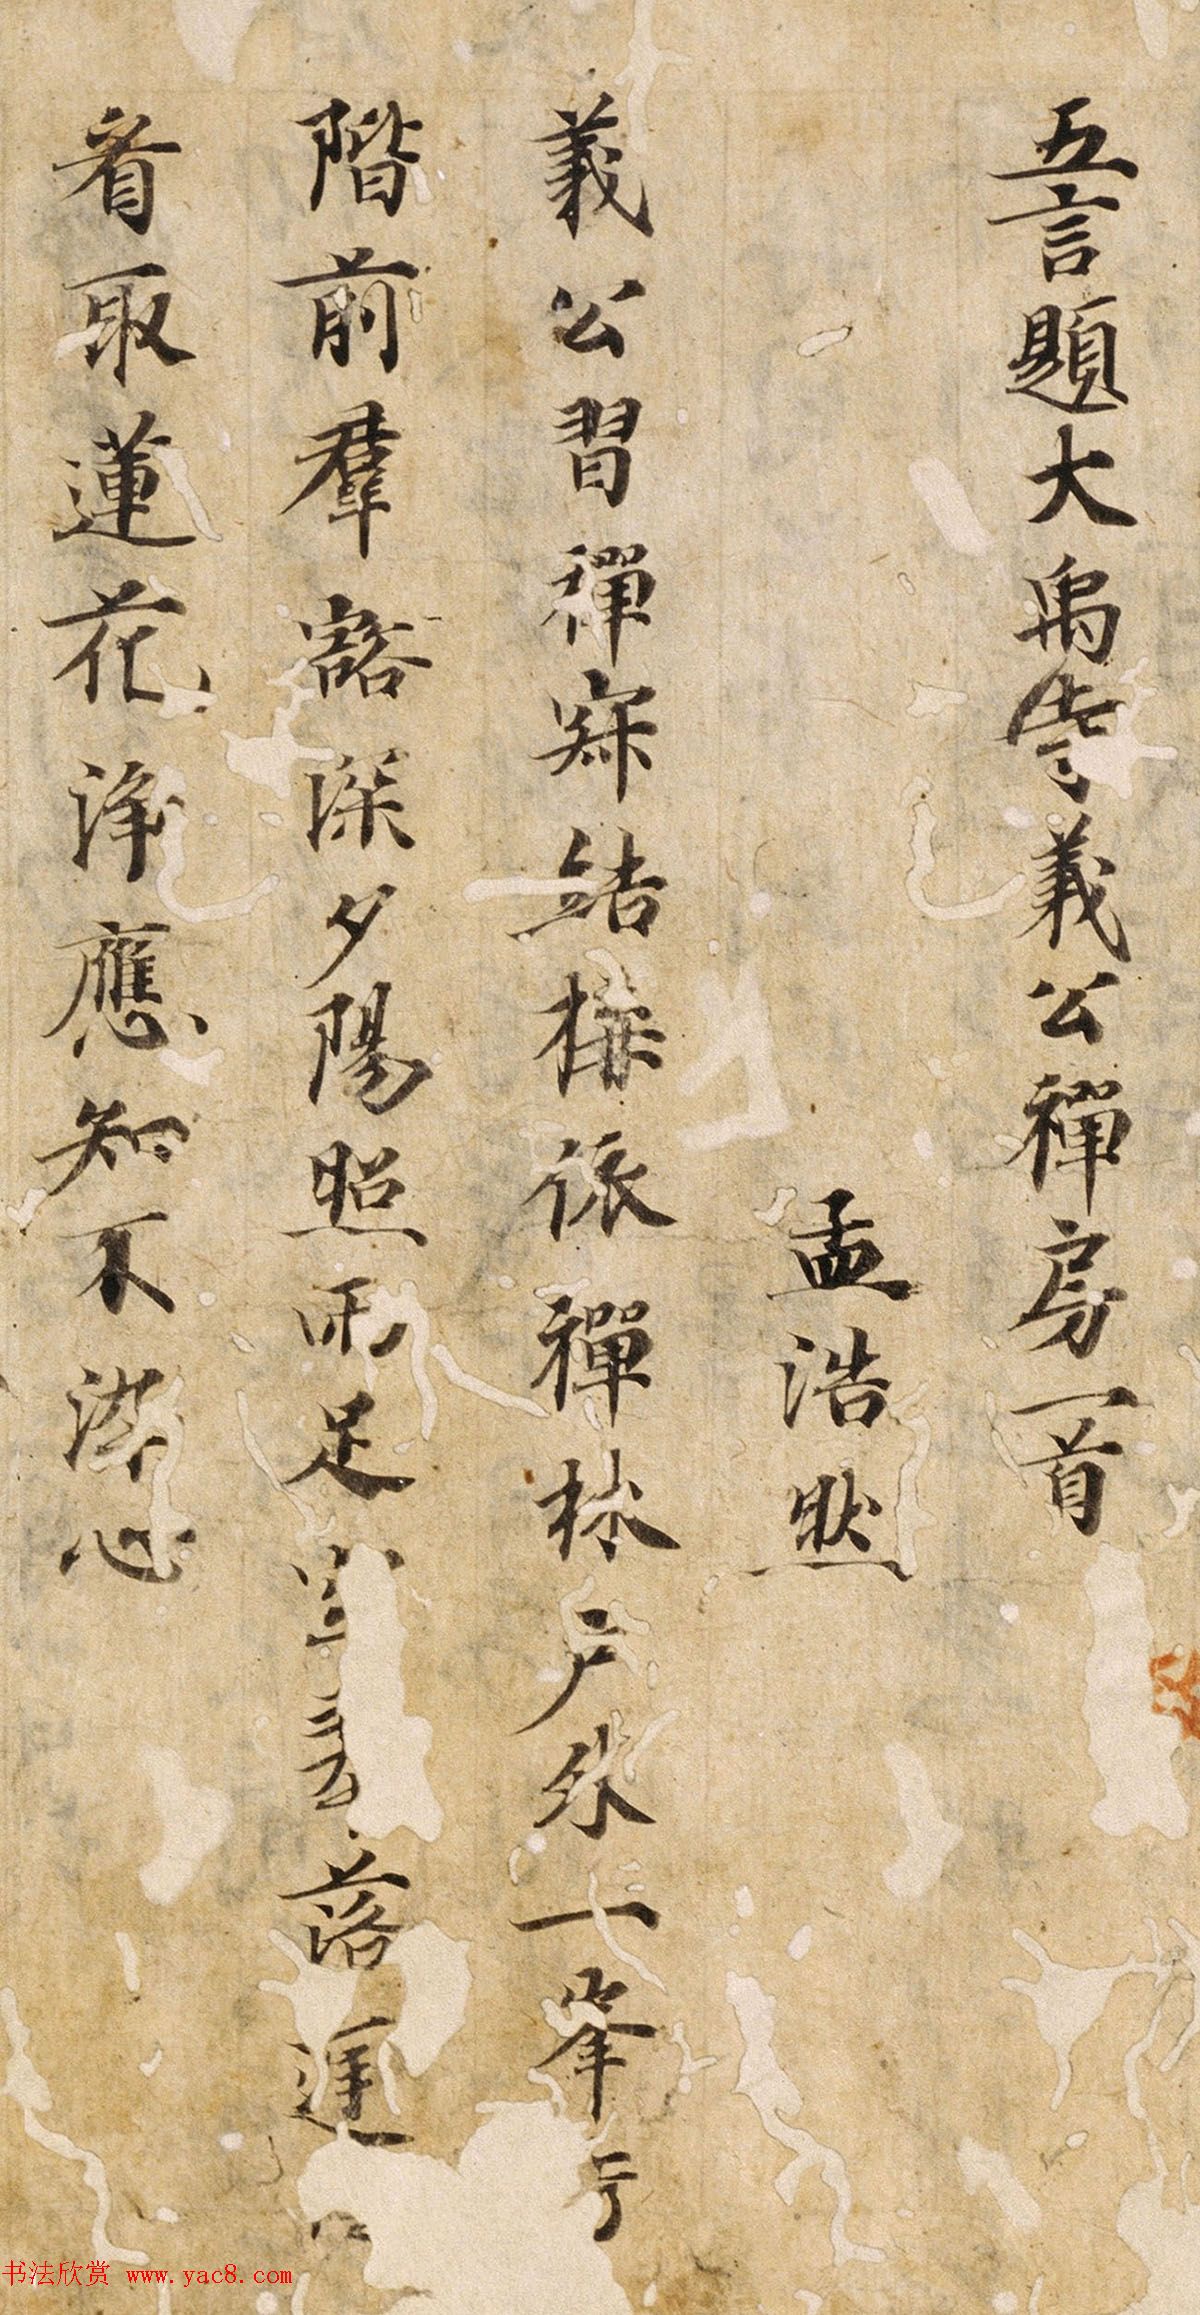 五言題大禹寺義公禪房一首
孟浩然
義公習禪寂結構依禪林户外一峯
階前羣壑深夕陽照雨足空翠落
看取蓮花淨應知不染心
书法欣赏 www.yac8.com